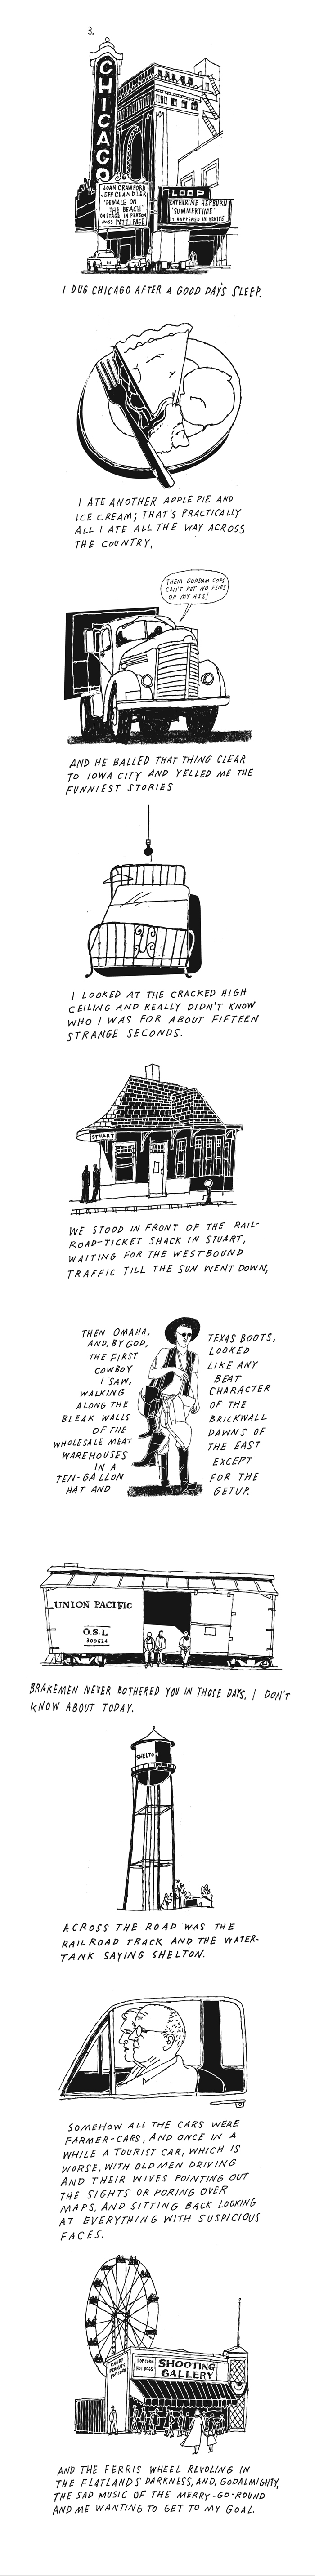 3.
CHICAGO
JOAN CRAWFORD
JEFF CHANDLER
"FEMALE ON
THE BEACH"
ON STAGE IN PERSON
MISS PATTI PAGE
LOOP
KATHARINE HEPBURN
"SUMMERTIME"
IT HAPPENED IN VENICE
I DUG CHICAGO AFTER A GOOD DAY'S SLEEP.
I ATE ANOTHER APPLE PIE AND
ICE CREAM; THAT'S PRACTICALLY
ALL I ATE ALL THE WAY ACROSS
THE COUNTRY,
THEM GODDAM COPS
CAN'T PUT NO FLIES
ON MY ASS!
AND HE BALLED THAT THING CLEAR
TO IOWA CITY AND YELLED ME THE
FUNNIEST STORIES
I LOOKED AT THE CRACKED HIGH
CEILING AND REALLY DIDN'T KNOW
WHO I WAS FOR ABOUT FIFTEEN
STRANGE SECONDS.
STUART
WE STOOD IN FRONT OF THE RAIL-
ROAD-TICKET SHACK IN STUART,
WAITING FOR THE WESTBOUND
TRAFFIC TILL THE SUN WENT DOWN,
THEN OMAHA,
AND, BY GOD,
THE FIRST
COWBOY
I SAW,
WALKING
ALONG THE
BLEAK WALLS
OF THE
WHOLESALE MEAT
WAREHOUSES
IN A
TEN-GALLON
HAT AND
TEXAS BOOTS,
LOOKED
LIKE ANY
BEAT
CHARACTER
OF THE
BRICKWALL
DAWNS OF
THE EAST
EXCEPT
FOR THE
GETUP.
UNION PACIFIC
O.S.L
300624
BRAKEMEN NEVER BOTHERED YOU IN THOSE DAYS, I DON'T
KNOW ABOUT TODAY.
SHELTON
ACROSS THE ROAD WAS THE
RAILROAD TRACK AND THE WATER-
TANK SAYING SHELTON.
SOMEHOW ALL THE CARS WERE
FARMER-CARS, AND ONCE IN A
WHILE A TOURIST CAR, WHICH IS
WORSE, WITH OLD MEN DRIVING
AND THEIR WIVES POINTING OUT
THE SIGHTS OR PORING OVER
MAPS, AND SITTING BACK LOOKING
AT EVERYTHING WITH SUSPICIOUS
FACES.
CANDY
PEANUTS
POP CORN
POP CORN
HOT DOGS
SHOOTING
GALLERY
AND THE FERRIS WHEEL REVOLING IN
THE FLATLANDS DARKNESS, AND, GODALMIGHTY,
THE SAD MUSIC OF THE MERRY-GO-ROUND
AND ME WANTING TO GET TO MY GOAL.